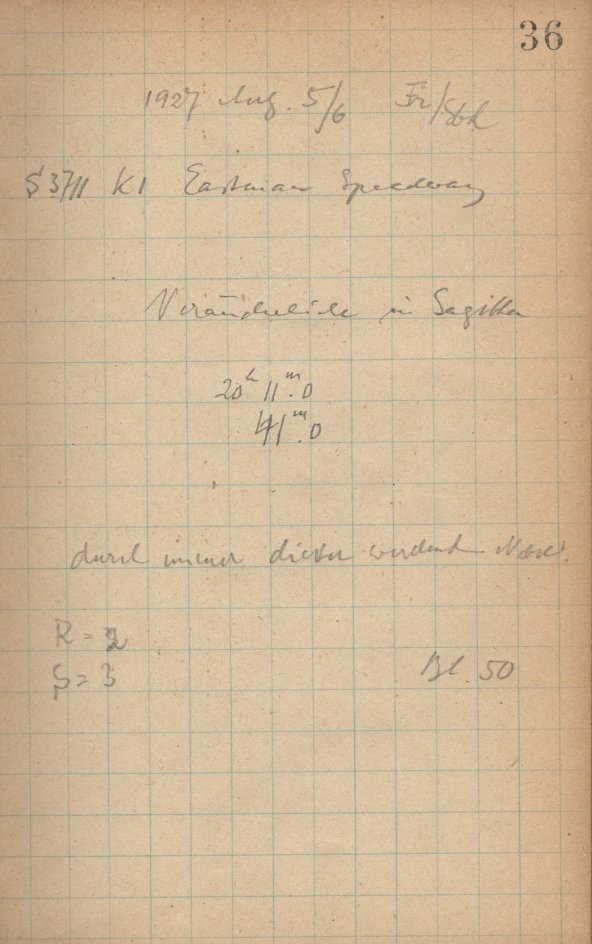 36
1927 Aug. 5/6 Fr/Sbd
S 3711 K1 Eastman Speedway
Veränderliche in Sagitta
20ʰ 11ᵐ.0
41ᵐ.0
durch immer dichter werdende
R = 2
S = 3
Bl. 50